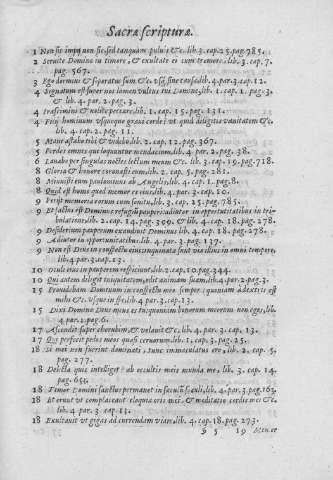 Sacræ scripturæ
1 Non sic impij non sic, sed tanquam puluis &c. lib. 3. cap. 25. pag. 785.
2 Seruite Domino in timore, & exultate ei cum tremore. lib. 3. cap. 7.
pag. 567.
3 Ego dormiui & soporatus sum &c. lib. 4. par. 3. cap. 12.
4 Signatum est super nos lumen vultus tui Domine, lib. 1. cap. 1. pag. 3.
& lib. 4. par. 2. pag. 3.
4 Irascimini & nolite peccare. lib. 1. cap. 15. pag. 131.
4 Filij hominum vsquequo graui corde? vt quid diligitis vanitatem &c.
lib. 4. cap. 2. pag. 11.
5 Mane astabo tibi & videbo. lib. 2. cap. 12. pag. 367.
5 Perdes omnes qui loquuntur mendacium. lib. 4. par. 2. pag. 38.
6 Lauabo per singulas noctes lectum meum &c. lib. 3. cap. 19. pag. 718.
8 Gloria & honore coronasti eum. lib. 2. cap. 5. pag. 281.
8 Minuisti eum paulominus ab Angelis, lib. 4. cap. 1. pag. 8.
8 Quid est homo quod memor es eius, lib. 4. par. 3. cap. 10.
9 Perijt memoria eorum cum sonitu, lib. 3. cap. 25. pag. 785.
9 Et factus est Dominus refugium pauperi: adiutor in opportunitatibus in tri-
bulatione. lib. 2. cap. 14. pag. 309. & lib. 4. cap. 18. pag. 278.
9 Desiderium pauperum exaudiuit Dominus lib. 4. cap. 18. pag. 278.
9 Adiutor in opportunitatibus. lib. 4. par. 3. pag. 137.
9 Non est Deus in conspectu eius, inquinatæ sunt viæ illius in omni tempore,
lib. 4. par. 3. cap. 13.
10 Oculi eius in pauperem respiciunt. lib. 2. cap. 10. pag. 344.
10 Qui autem deligit iniquitatem, odit animam suam. lib. 4. par. 2. pag. 3.
15 Prouidebam Dominum in conspectu meo semper: quoniam à dextris est
mihi &c. Vsque in fi. lib. 4. par. 3. cap. 13.
15 Dixi Domino Deus meus es tu, quoniam bonorum meorum non eges, lib.
4. par. 2. pag. 6.
17 Ascendit super cherubim, & volauit &c. lib. 4. par. 3. cap. 13.
17 Qui perfecit pedes meos quasi ceruorum. lib. 1. cap. 3. pag. 25.
18 Si mei non fuerint dominati, tunc immaculatus ero, lib. 2. cap. 5.
pag. 277.
18 Delicta quis intelliget? ab occultis meis munda me, lib. 3. cap. 14.
pag. 651.
18 Timor Domini sanctus permanet in sæculum sæculi, lib. 4. par. 3. pag. 163.
18 Et erunt vt complaceant eloquia oris mei & meditatio cordis mei &c.
lib. 4. par. 3. cap. 13.
18 Exultauit vt gigas ad currendam viam, lib. 4. cap. 18. pag. 273.
§ 5 19